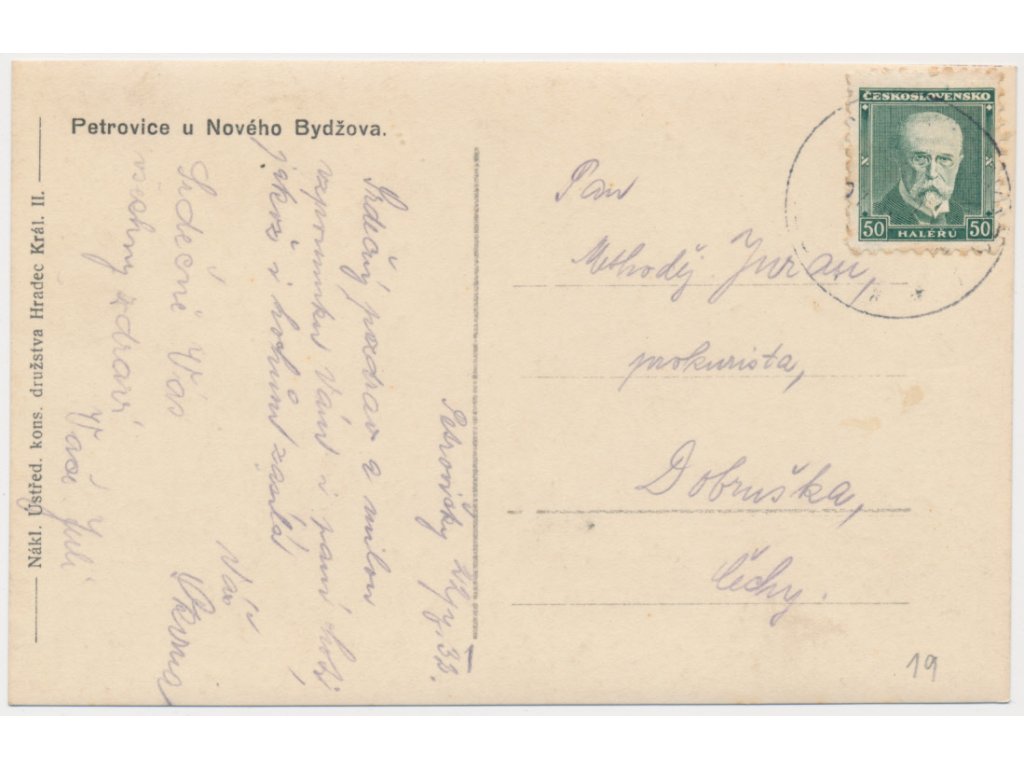 Petrovice u Nového Bydžova.
Nákl. Ústřed. kons. družstva Hradec Král. II.
ČESKOSLOVENSKO
50 HALÉŘŮ 50
Pan
Methoděj Juran,
prokurista,
Dobruška,
Čechy.
19
Petrovičky
Srdečný pozdrav a milou
vzpomínku Vám i paní
jakož i hochům zasílá
Váš
Srdečně Vás
všechny zdraví
Vaše Juli